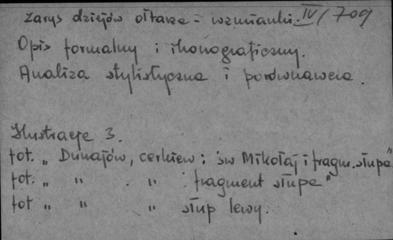 Zarys dziejów ołtarza - wzmianki. IV/709
Opis formalny i ikonograficzny.
Analiza stylistyczna i porównawcza.
Ilustracje 3.
fot. „ Dunajów, cerkiew: św Mikołaj i fragm. słupa"
fot. „ " " fragment słupa"
fot „ " " słup lewy.